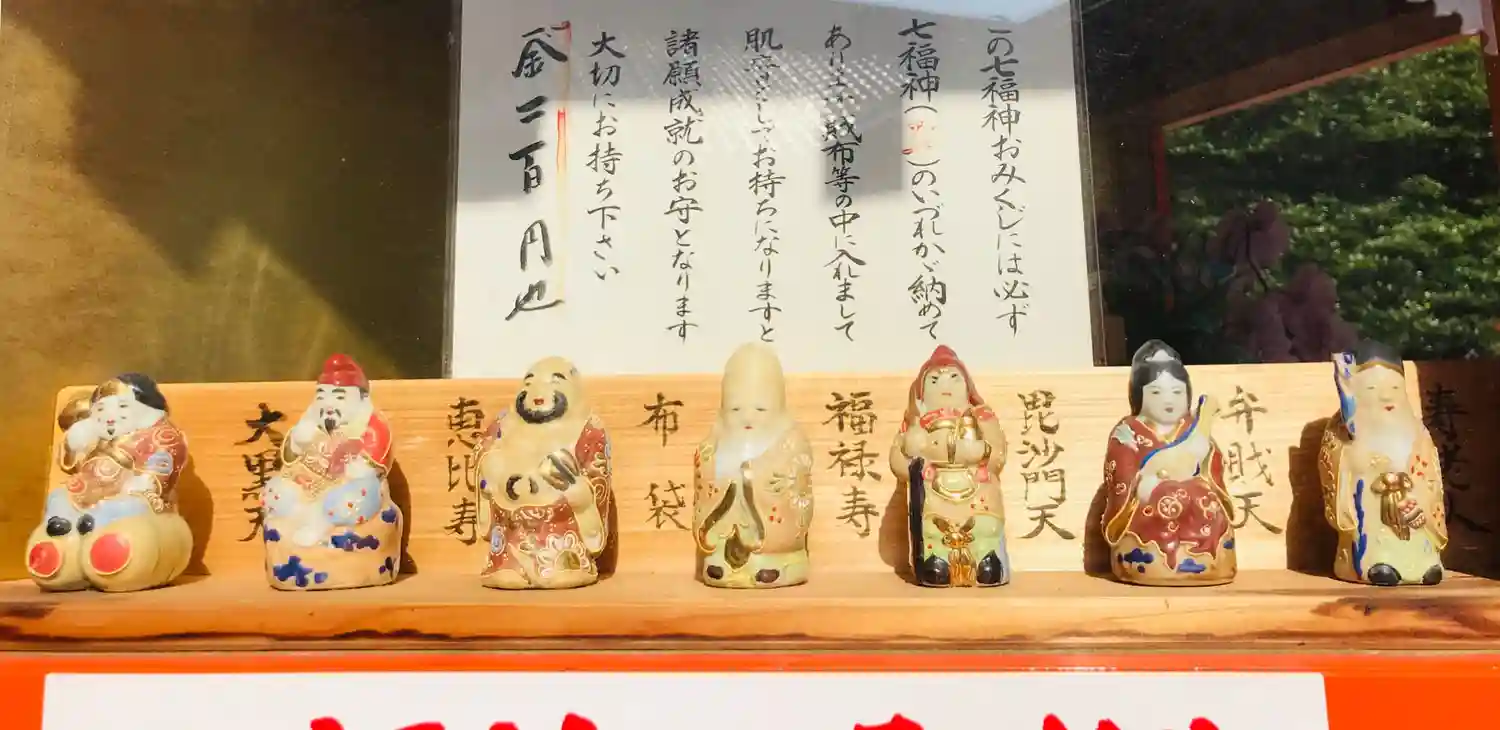 この七福神おみくじには必ず
七福神()のいづれかが納めて
あります 財布等の中に入れまして
お持ちになりますと
諸願成就のお守となります
大切にお持ち下さい
金二百円也
大黒天
恵比寿
布袋
福禄寿
毘沙門天
弁財天
寿老人